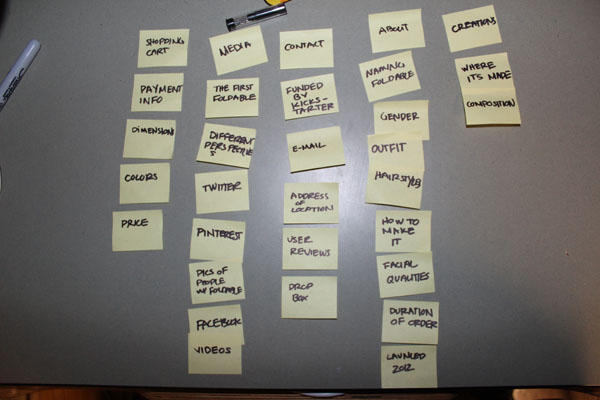 SHOPPING
CART
PAYMENT
INFO
DIMENSION
COLORS
PRICE
MEDIA
THE FIRST
FOLDABLE
DIFFERENT
TWITTER
PINTEREST
PICS OF
PEOPLE
W/ FOLDABLE
FACEBOOK
VIDEOS
CONTACT
FUNDED
BY
KICKS-
TARTER
E-MAIL
ADDRESS
OF
LOCATION
USER
REVIEWS
DROP
BOX
ABOUT
NAMING
FOLDABLE
GENDER
OUTFIT
HAIRSTYLES
HOW TO
MAKE
IT
FACIAL
QUALITIES
DURATION
OF ORDER
2012
CREATIONS
WHERE
ITS MADE
COMPOSITION